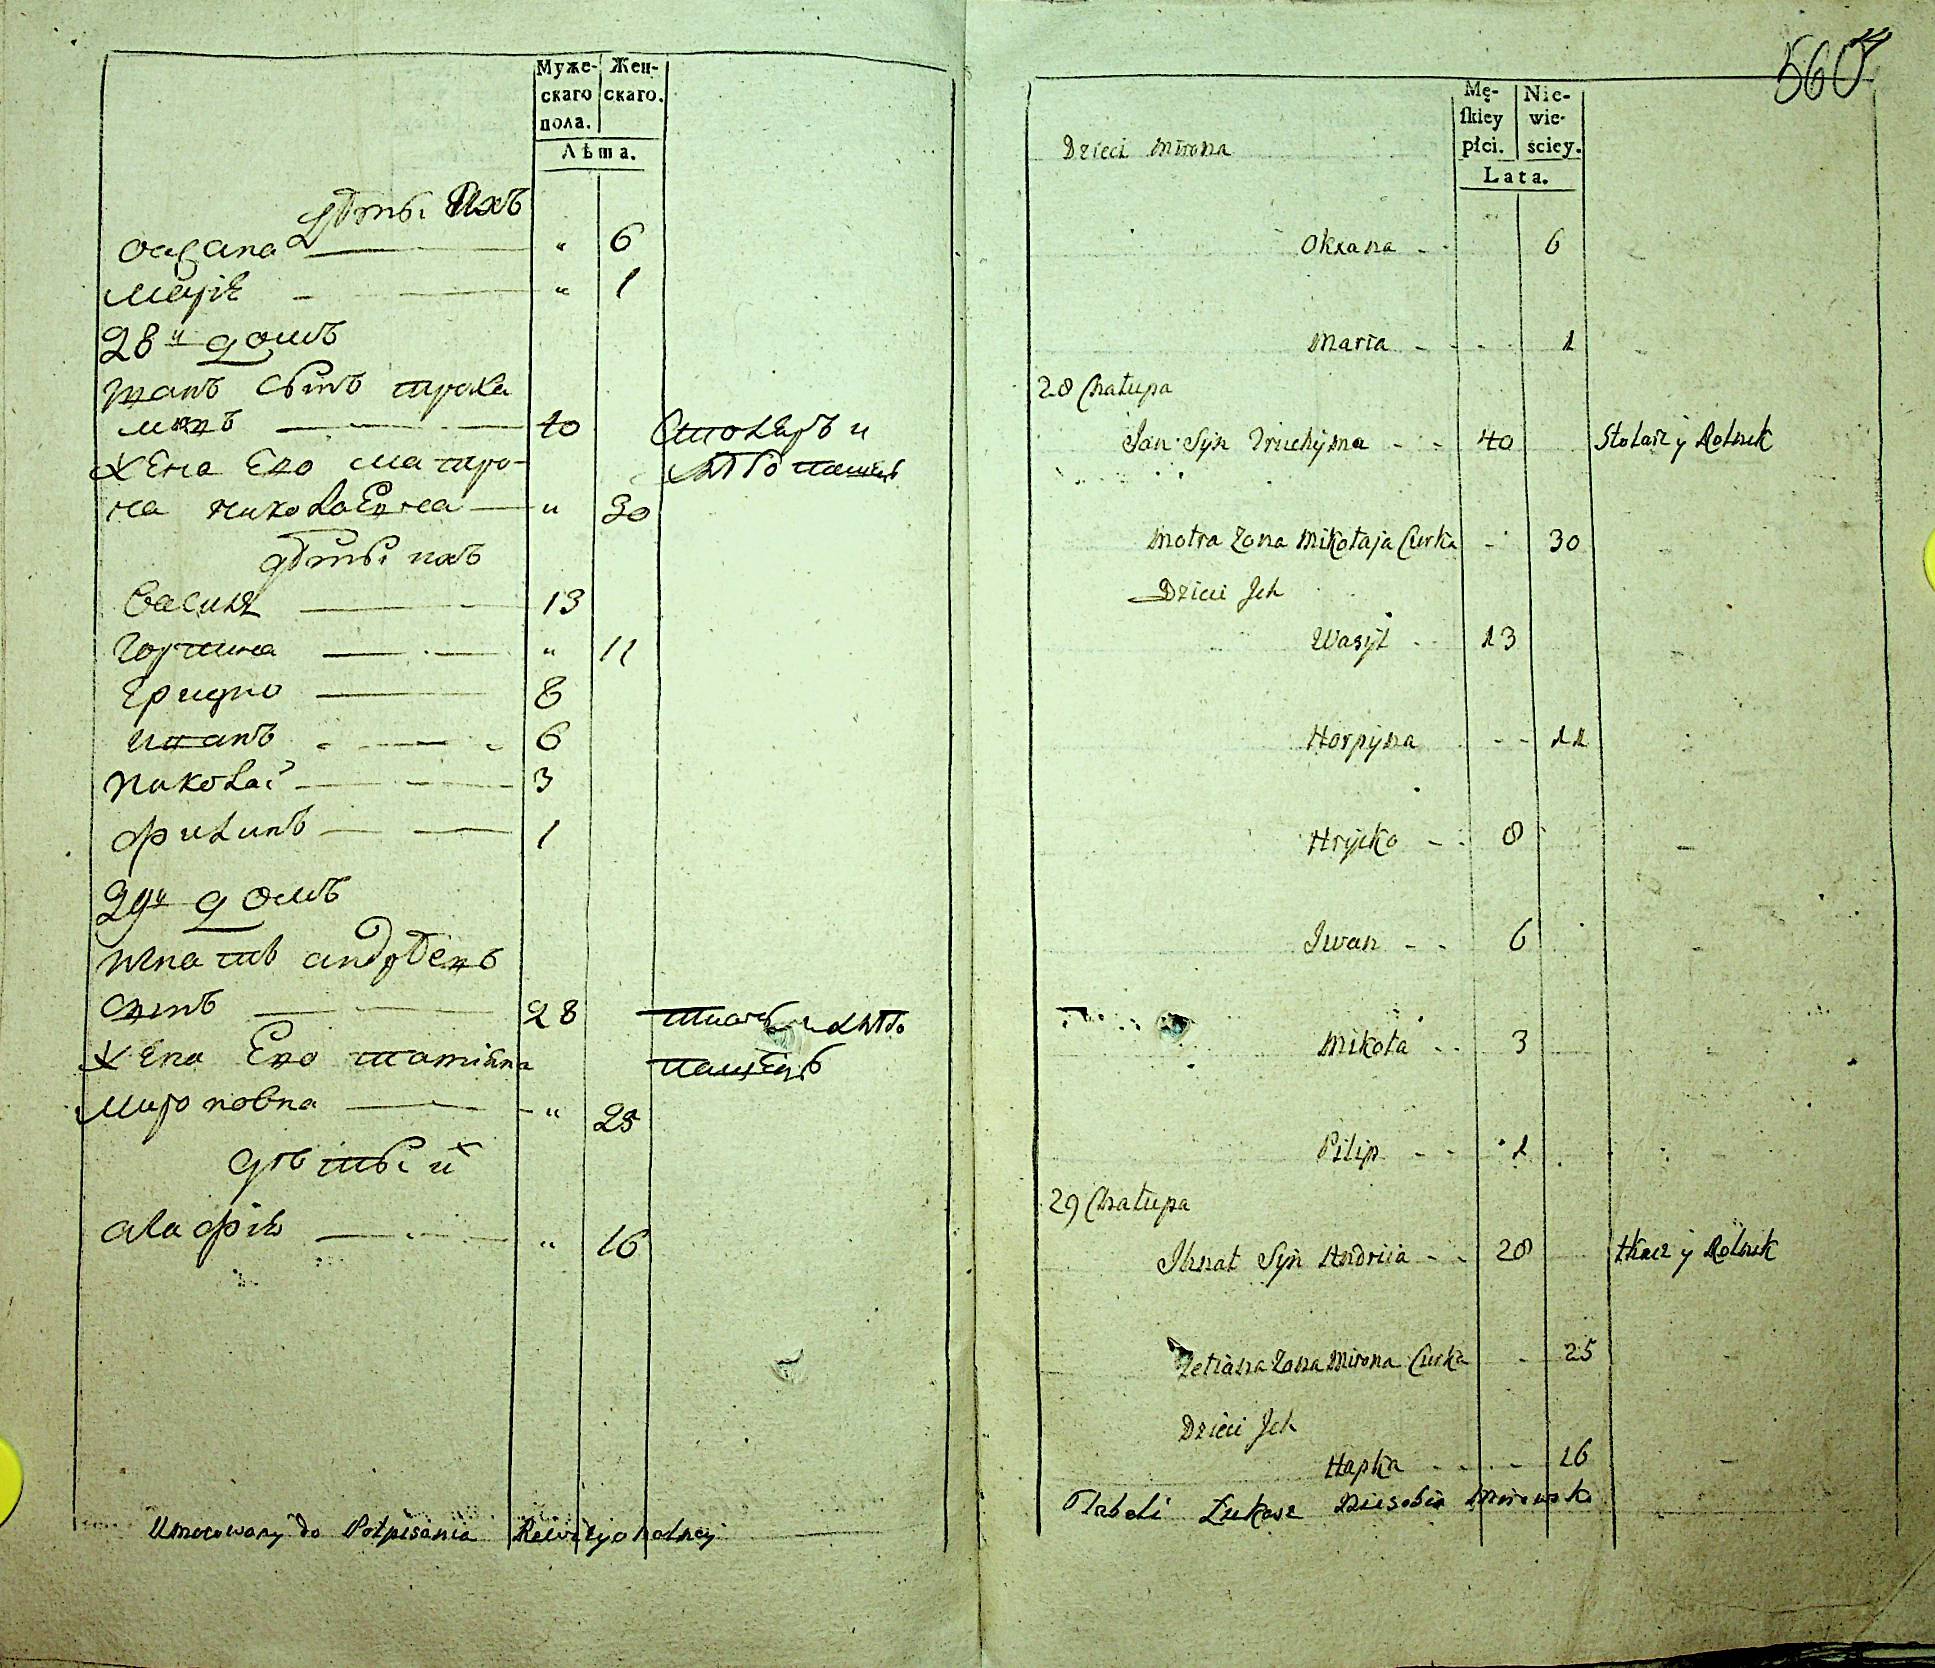 Муже-
скаго
пола.
Жен-
скаго.
Лѣта.
Дѣтьі Ихъ
Оксана " 6
Маріѣ " 1
28й домъ
іванъ сынъ трохи
мовъ 40 Столяръ и
Жена Его матро-
на николаевна " 30
дѣтьі ихъ
Василь 13
Горпина " 11
Грицко 8
иванъ 6
николаї 3
филипъ 1
29й домъ
игнатъ андрѣевъ
сынъ 28 ткачъ и хлѣбо
Жена Его татіяна пашецъ
Мироновна " 25
дѣтьі их
агафіѣ " 16
Umocowany do Potpisania Rewizyonalney
560
Mę-
skiey
płci.
Nie-
wie-
sciey.
Lata.
Dzieci Mirona
Oxana 6
Maria 1
28 Chałupa
Jan Syn Truchyma 40 Stolarz y Rolnik
Motra Zona Mikołaja Curka 30
Dzieci Jch
Wasyl 13
Horpyna 11
Hryćko 8
Iwan 6
Mikoła 3
Pilip 1
29 Chałupa
Ihnat Syn Andriia 28 tkacz y Rolnik
Tetiana Zona Mirona Curka 25
Dzieci Jch
Hapka 16
Tabeli Łukasz